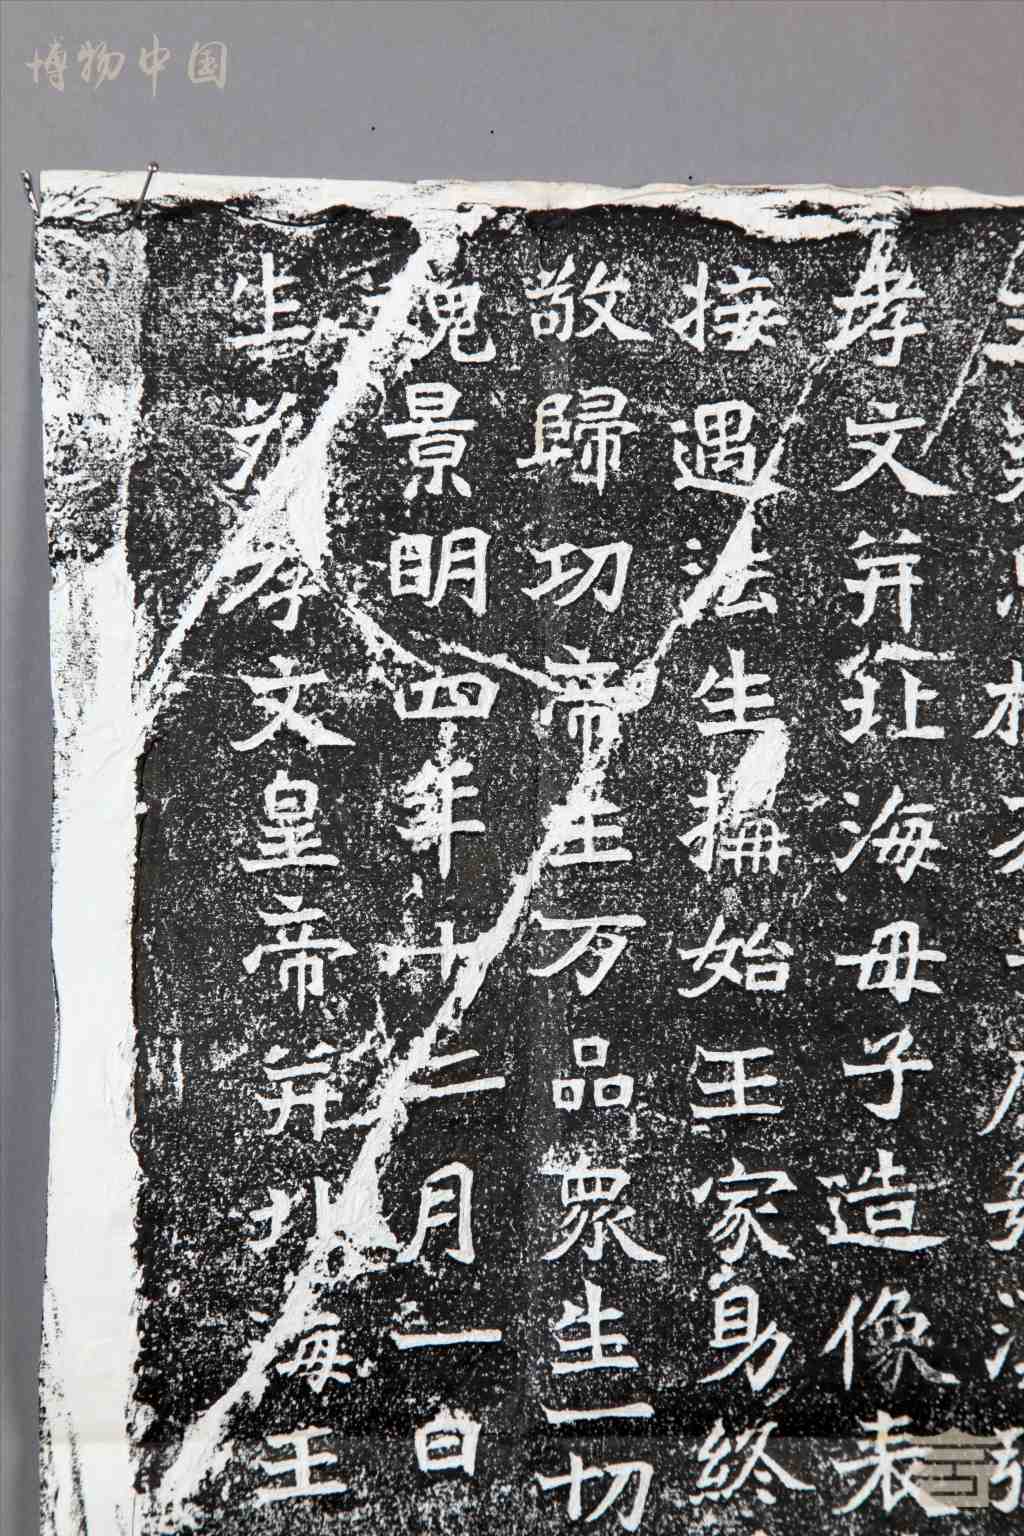 博物中国
孝文并北海母子造像表
接遇法生搆始王家身終
敬歸功帝王万品衆生一切
魏景明四年十二月一日
生為孝文皇帝并北海王